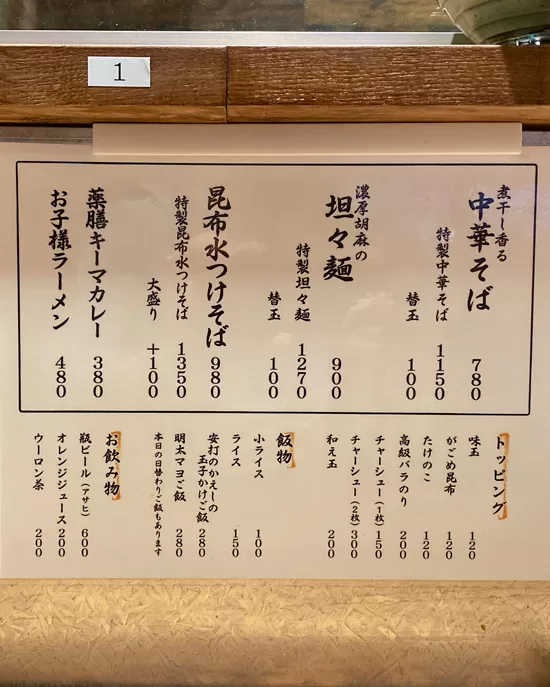 1
煮干し香る
中華そば 780
特製中華そば 1150
替玉 100
濃厚胡麻の
坦々麺 900
特製坦々麺 1270
替玉 100
昆布水つけそば 980
特製昆布水つけそば 1350
大盛り +100
薬膳キーマカレー 380
お子様ラーメン 480
トッピング
味玉 120
がごめ昆布 120
たけのこ 120
高級バラのり 200
チャーシュー(1枚) 150
チャーシュー(2枚) 300
和え玉 200
飯物
小ライス 100
ライス 150
安打のかえしの
玉子かけご飯 280
明太マヨご飯 280
本日の日替わりご飯もあります
お飲み物
瓶ビール(アサヒ) 600
オレンジジュース 200
ウーロン茶 200